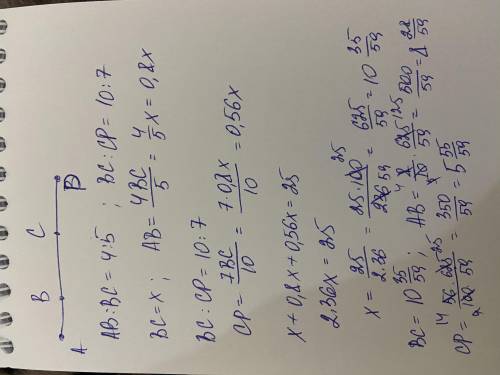 A B C
AB:BC = 4:5 ; BC:CP = 10:7
BC = x ; AB = 4BC/5 = 4/5 x = 0,8x
BC:CP = 10:7
CP = 7BC/10 = 7·0,8x/10 = 0,56x
x + 0,8x + 0,56x = 25
2,36x = 25
x = 25/2.36 = 25·100 25/236 59 = 625/59 = 10 35/59
BC = 10 35/59 ; AB = 4 8/10 · 625 125/59 = 500/59 = 8 28/59
CP = 14 56·625 25/100·59 = 350/59 = 5 55/59